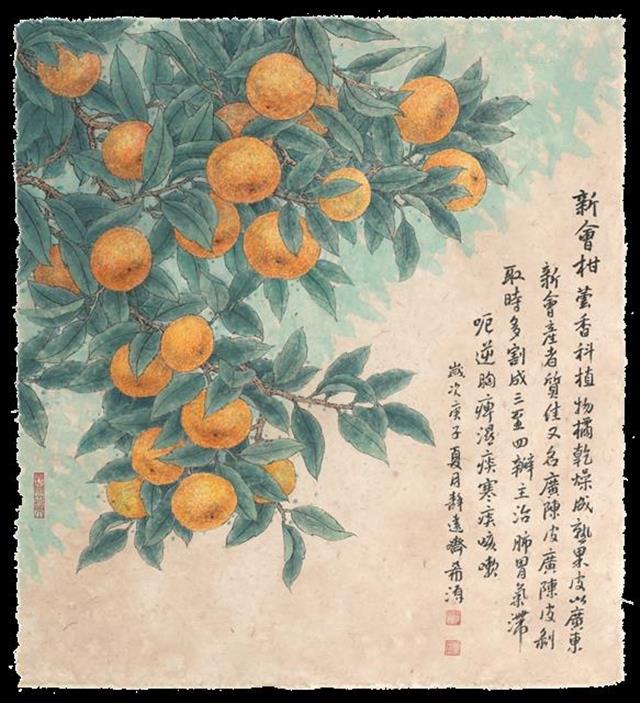 新會柑 蕓香科植物橘乾燥成熟果皮以廣東
新會產者質佳又名廣陳皮廣陳皮剝
取時多割成三至四瓣主治肺胃氣滯
呃逆胸痺濕痰寒痰咳嗽
歲次庚子夏月靜遠齋希濤